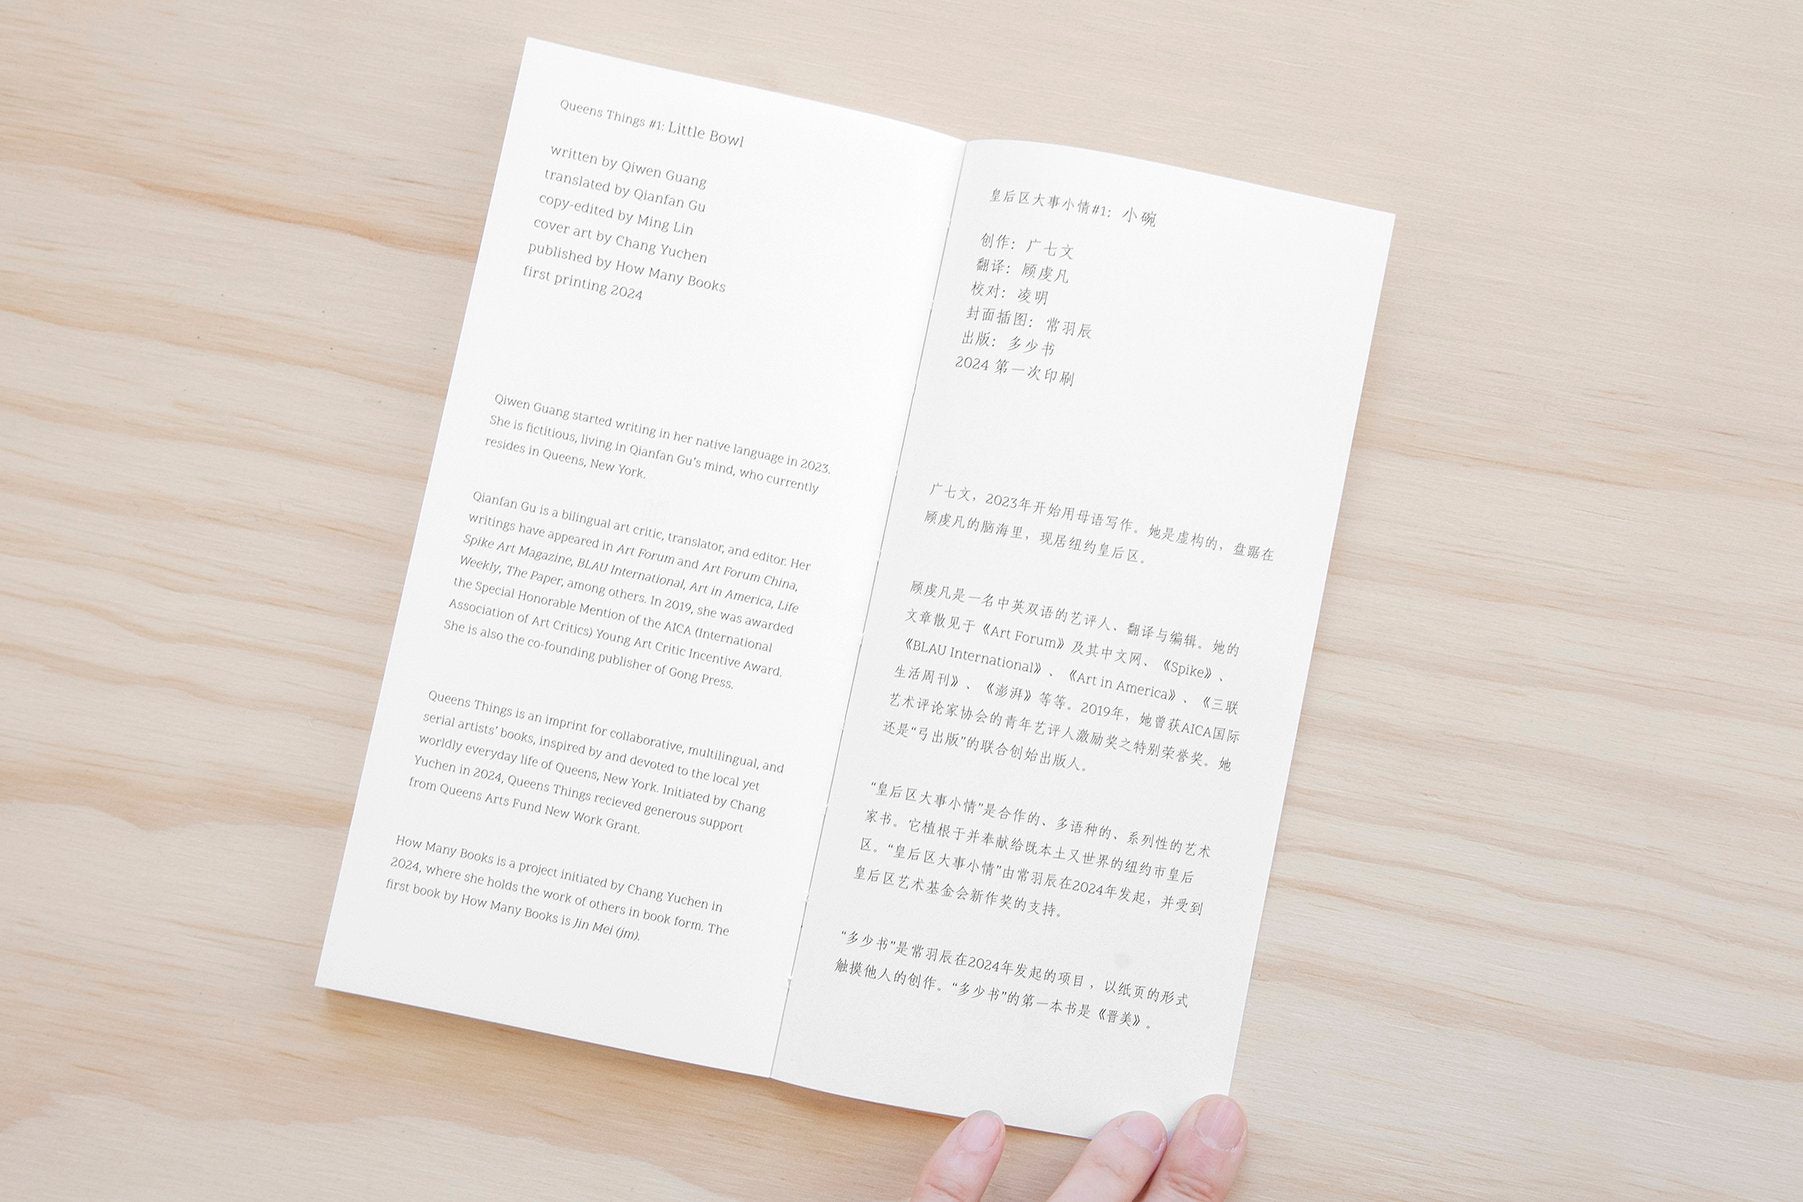 Queens Things #1: Little Bowl
written by Qiwen Guang
translated by Qianfan Gu
copy-edited by Ming Lin
cover art by Chang Yuchen
published by How Many Books
first printing 2024
Qiwen Guang started writing in her native language in 2023.
She is fictitious, living in Qianfan Gu's mind, who currently
resides in Queens, New York.
Qianfan Gu is a bilingual art critic, translator, and editor. Her
writings have appeared in Art Forum and Art Forum China,
Spike Art Magazine, BLAU International, Art in America, Life
Weekly, The Paper, among others. In 2019, she was awarded
the Special Honorable Mention of the AICA (International
Association of Art Critics) Young Art Critic Incentive Award.
She is also the co-founding publisher of Gong Press.
Queens Things is an imprint for collaborative, multilingual, and
serial artists' books, inspired by and devoted to the local yet
worldly everyday life of Queens, New York. Initiated by Chang
Yuchen in 2024, Queens Things recieved generous support
from Queens Arts Fund New Work Grant.
How Many Books is a project initiated by Chang Yuchen in
2024, where she holds the work of others in book form. The
first book by How Many Books is Jin Mei (jm).
皇后区大事小情#1：小碗
创作：广七文
翻译：顾虔凡
校对：凌明
封面插图：常羽辰
出版：多少书
2024 第一次印刷
广七文，2023年开始用母语写作。她是虚构的，盘踞在
顾虔凡的脑海里，现居纽约皇后区。
顾虔凡是一名中英双语的艺评人、翻译与编辑。她的
文章散见于《Art Forum》及其中文网、《Spike》、
《BLAU International》、《Art in America》、《三联
生活周刊》、《澎湃》等等。2019年，她曾获AICA国际
艺术评论家协会的青年艺评人激励奖之特别荣誉奖。她
还是“弓出版”的联合创始出版人。
“皇后区大事小情”是合作的、多语种的、系列性的艺术
家书。它植根于并奉献给既本土又世界的纽约市皇后
区。“皇后区大事小情”由常羽辰在2024年发起，并受到
皇后区艺术基金会新作奖的支持。
“多少书”是常羽辰在2024年发起的项目，以纸页的形式
触摸他人的创作。“多少书”的第一本书是《晋美》。